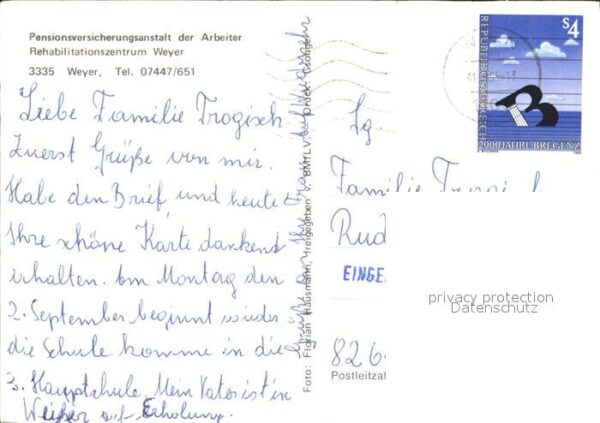 Pensionsversicherungsanstalt der Arbeiter
Rehabilitationszentrum Weyer
3335 Weyer, Tel. 07447/651
Liebe Familie Trogisch
Zuerst Grüße von mir.
Habe den Brief, und heute
Ihre schöne Karte dankend
erhalten. Am Montag den
2. September beginnt wieder
die Schule komme in die
3. Hauptschule Mein Vater ist in
Weyer auf Erholung.
Foto: Florian Hausmann, freigegeben v. BMfLV
Druck
Grüße an Ihre
S 4
REPUBLIK ÖSTERREICH
2000 JAHRE BREGENZ
Fg.
Familie Trogisch
Rud
EINGE
826
Postleitzal
privacy protection
Datenschutz